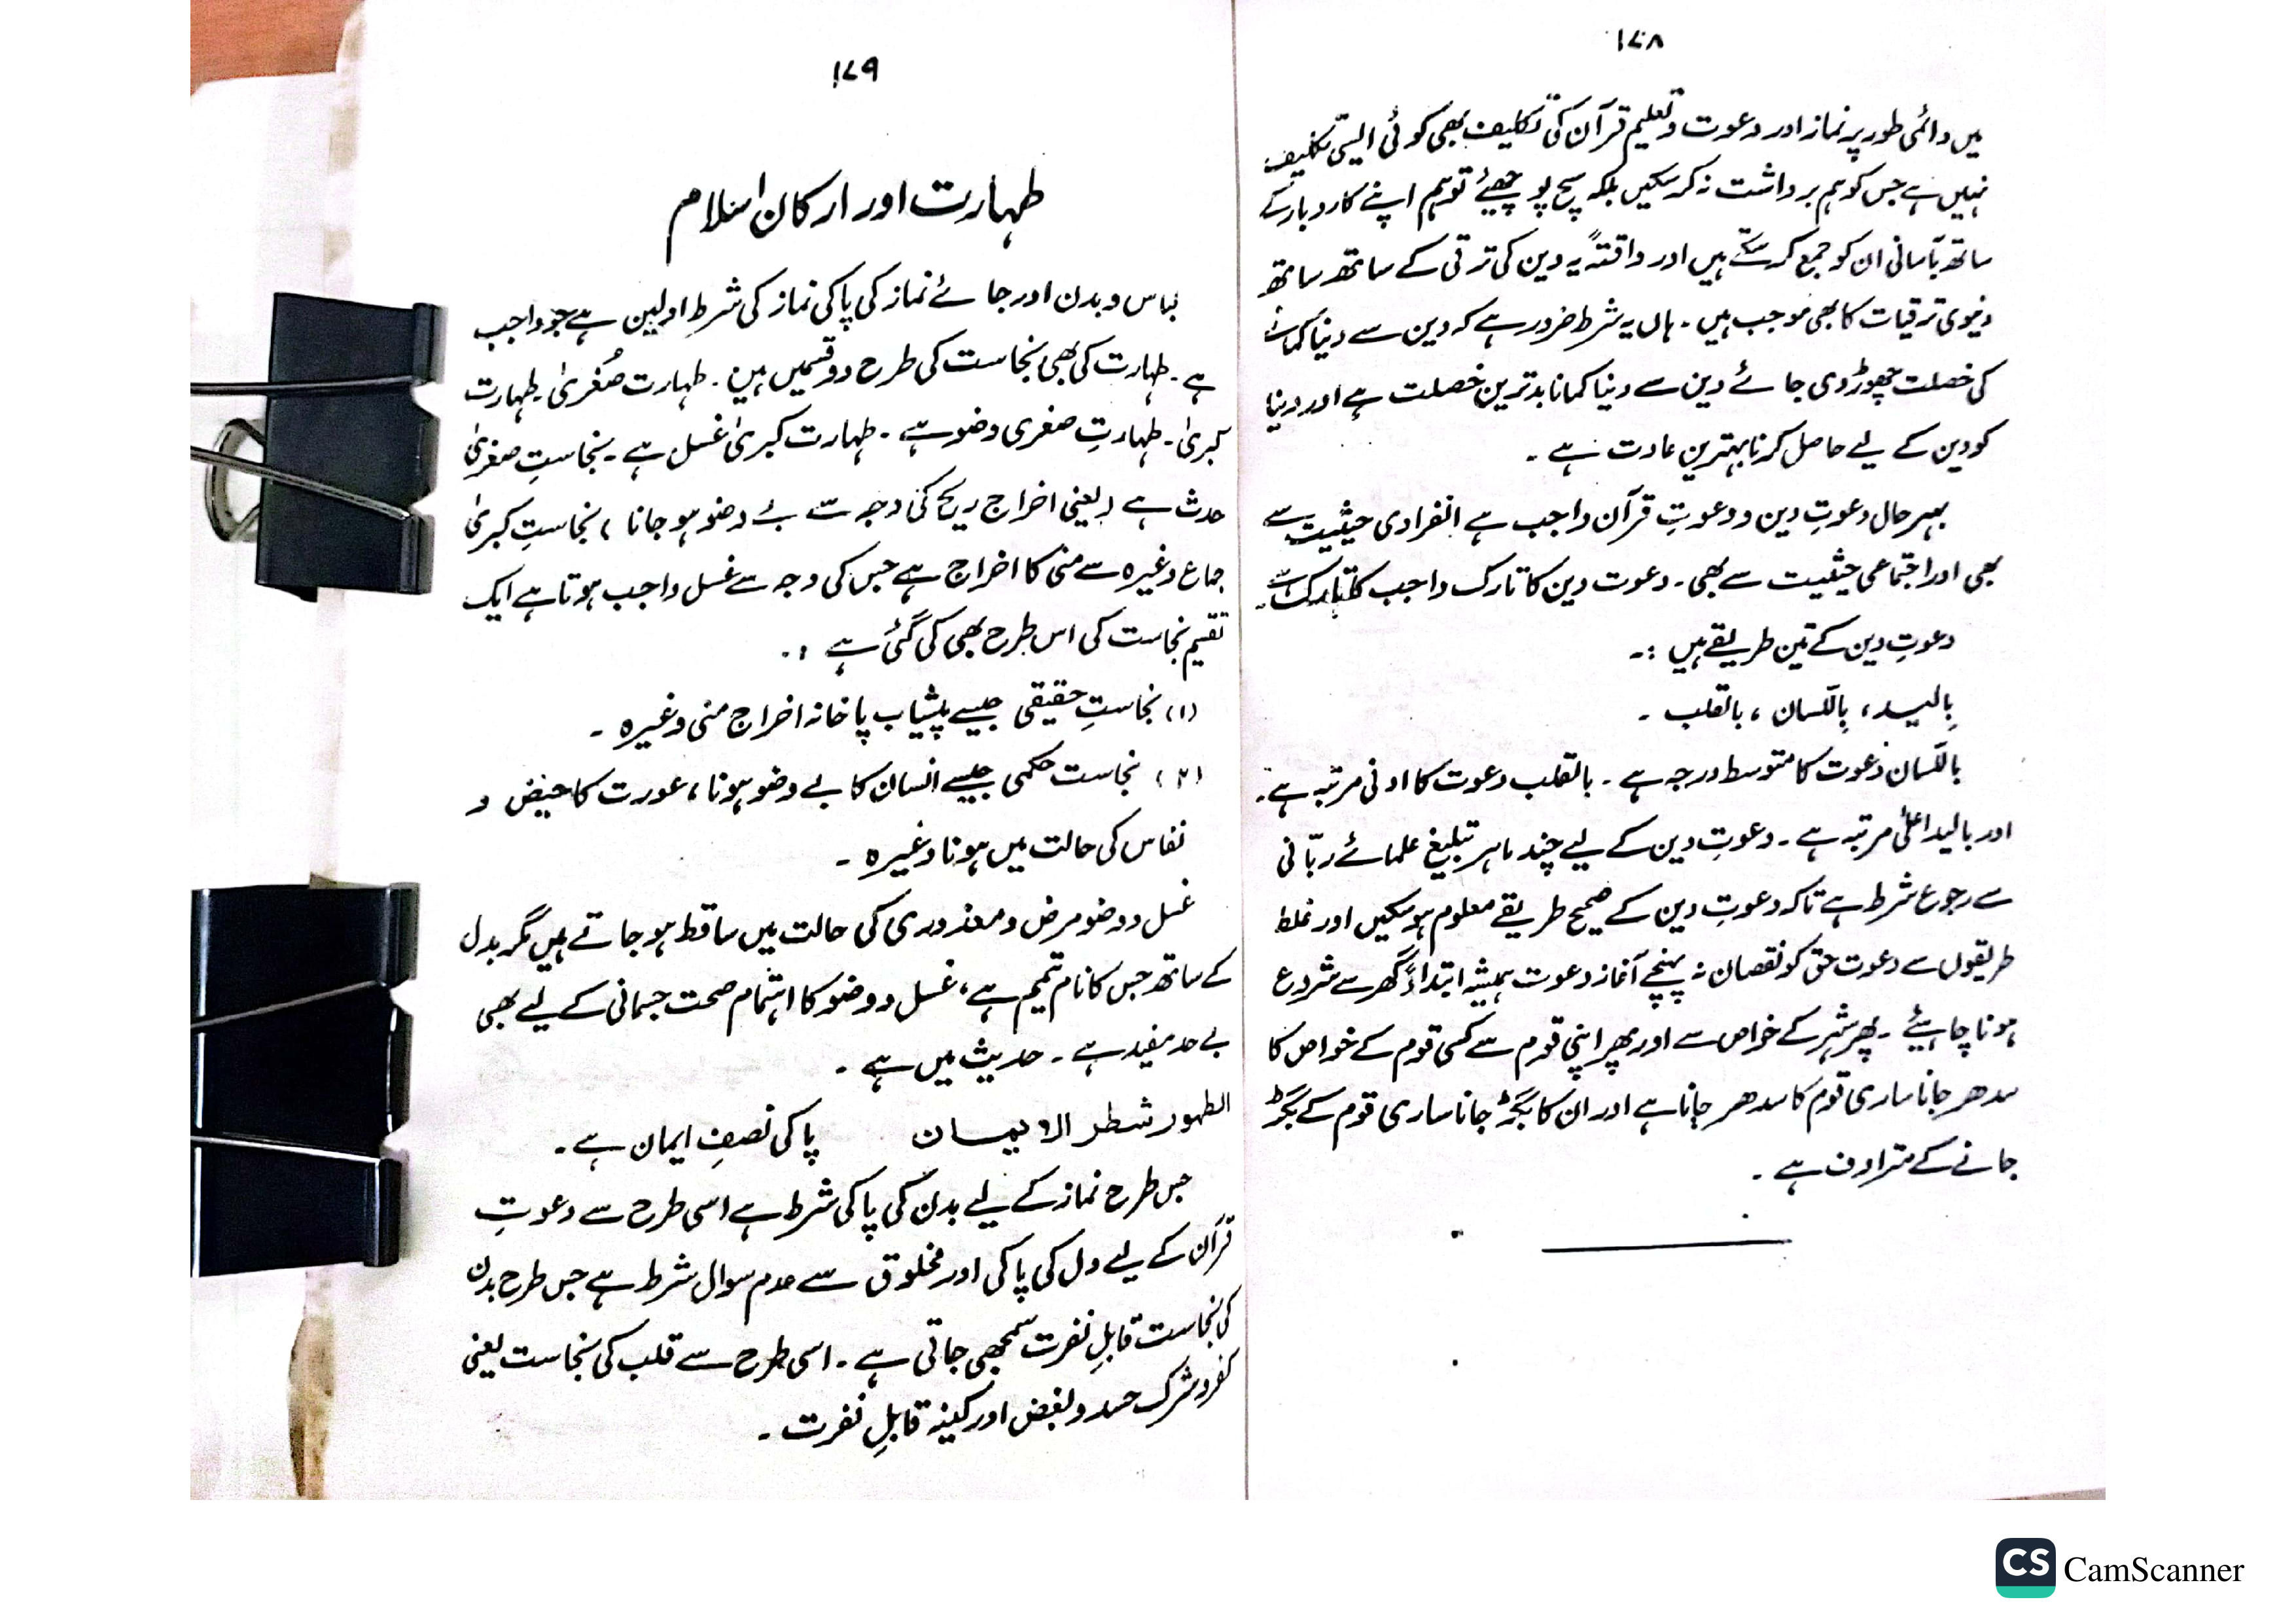 ۱۷۸
میں دائمی طور پر نماز اور دعوت و تعلیم قرآن کی تکلیف بھی کوئی ایسی تکلیف
نہیں ہے جس کو ہم برداشت نہ کر سکیں بلکہ سچ پوچھیئے تو ہم اپنے کاروبار کے
ساتھ بآسانی ان کو جمع کر سکتے ہیں اور واقعتہً یہ دین کی ترقی کے ساتھ ساتھ
دنیوی ترقیات کا بھی موجب ہیں۔ ہاں یہ شرط ضرور ہے کہ دین سے دنیا کمانے
کی خصلت چھوڑ دی جائے دین سے دنیا کمانا بدترین خصلت ہے اور دنیا
کو دین کے لیے حاصل کرنا بہترین عادت ہے ۔
بہر حال دعوتِ دین و دعوتِ قرآن واجب ہے انفرادی حیثیت سے
بھی اور اجتماعی حیثیت سے بھی۔ دعوت دین کا تارک واجب کا تارک ہے۔
دعوتِ دین کے تین طریقے ہیں :۔
بِالید، بِاللّسان ، بالقلب ۔
باللّسان دعوت کا متوسط درجہ ہے ۔ بالقلب دعوت کا ادنی مرتبہ ہے۔
اور بالید اعلیٰ مرتبہ ہے ۔ دعوتِ دین کے لیے چند ماہر تبلیغ علمائے ربّانی
سے رجوع شرط ہے تاکہ دعوتِ دین کے صحیح طریقے معلوم ہو سکیں اور غلط
طریقوں سے دعوت حق کو نقصان نہ پہنچے آغاز دعوت ہمیشہ ابتداءً گھر سے شروع
ہونا چاہیئے ۔ پھر شہر کے خواص سے اور پھر اپنی قوم سے کسی قوم کے خواص کا
سدھر جانا ساری قوم کا سدھر جانا ہے اور ان کا بگڑ جانا ساری قوم کے بگڑ
جانے کے مترادف ہے ۔
۱۷۹
طہارت اور ارکان اسلام
لباس و بدن اور جائے نماز کی پاکی نماز کی شرطِ اولین ہے جو واجب
ہے ۔ طہارت کی بھی نجاست کی طرح دو قسمیں ہیں ۔ طہارت صُغریٰ۔ طہارت
کبریٰ ۔ طہارتِ صغری وضو ہے ۔ طہارت کبریٰ غسل ہے ۔ نجاستِ صغریٰ
حدث ہے (یعنی اخراج ریح کی وجہ سے بے وضو ہو جانا ) نجاستِ کبریٰ
جماع وغیرہ سے منی کا اخراج ہے جس کی وجہ سے غسل واجب ہوتا ہے ایک
تقسیم نجاست کی اس طرح بھی کی گئی ہے :۔
(۱) نجاستِ حقیقی جیسے پیشاب پاخانہ اخراج منی وغیرہ ۔
(۲) نجاست حکمی جیسے انسان کا بے وضو ہونا ، عورت کا حیض و
نفاس کی حالت میں ہونا وغیرہ ۔
غسل و وضو مرض و معذوری کی حالت میں ساقط ہو جاتے ہیں مگر بدل
کے ساتھ جس کا نام تیمم ہے ، غسل و وضو کا اہتمام صحت جسمانی کے لیے بھی
بے حد مفید ہے ۔ حدیث میں ہے ۔
الطہور شطر الایمان پاکی نصفِ ایمان ہے ۔
جس طرح نماز کے لیے بدن کی پاکی شرط ہے اسی طرح سے دعوتِ
قرآن کے لیے دل کی پاکی اور مخلوق سے عدم سوال شرط ہے جس طرح بدن
کی نجاست قابلِ نفرت سمجھی جاتی ہے ۔ اسی طرح سے قلب کی نجاست یعنی
کفر و شرک حسد و بغض اور کینہ قابلِ نفرت ۔
CS CamScanner